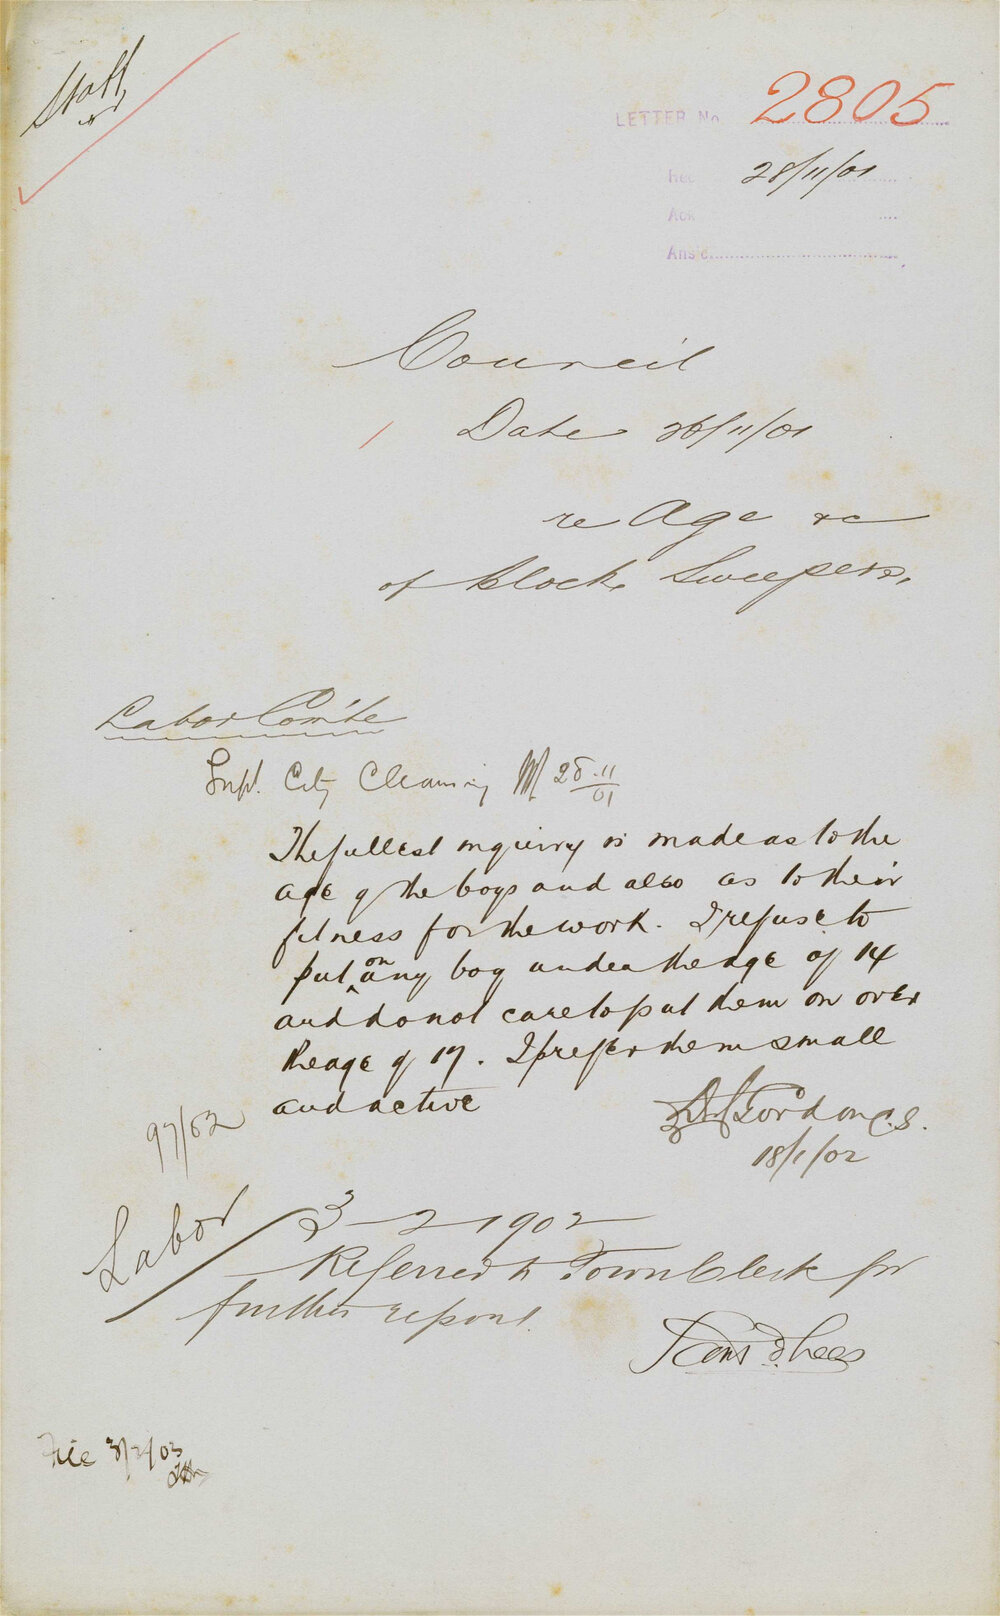 Staff
LETTER No. 2805
Rec 28/11/01
Ack
Ans'd
Council
Date 26/11/01
re Age &c
of block Sweepers,
Labor Com'te
Supt. City Cleaning 28.11/01
The fullest inquiry is made as to the
age of the boys and also as to their
fitness for the work. I refuse to
put on any boy under the age of 14
and do not care to put them on over
the age of 17. I prefer them small
and active
Gordon C.S.
18/1/02
97/02
Labor
3-2-1902
Referred to Town Clerk for
further report.
File 3/2/03